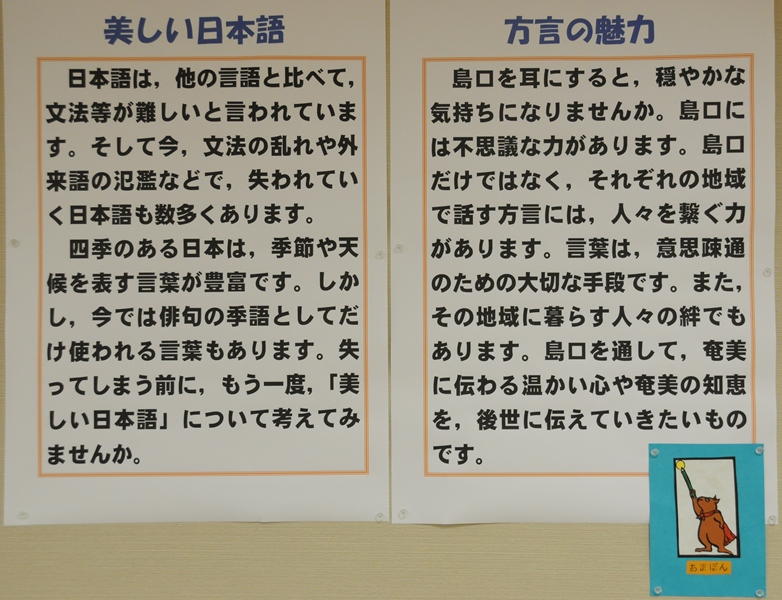 美しい日本語
　日本語は，他の言語と比べて，
文法等が難しいと言われていま
す。そして今，文法の乱れや外
来語の氾濫などで，失われてい
く日本語も数多くあります。
　四季のある日本は，季節や天
候を表す言葉が豊富です。しか
し，今では俳句の季語としてだ
け使われる言葉もあります。失
ってしまう前に，もう一度，「美
しい日本語」について考えてみ
ませんか。
方言の魅力
　島口を耳にすると，穏やかな
気持ちになりませんか。島口に
は不思議な力があります。島口
だけではなく，それぞれの地域
で話す方言には，人々を繋ぐ力
があります。言葉は，意思疎通
のための大切な手段です。また，
その地域に暮らす人々の絆でも
あります。島口を通して，奄美
に伝わる温かい心や奄美の知恵
を，後世に伝えていきたいもの
です。
あまぽん